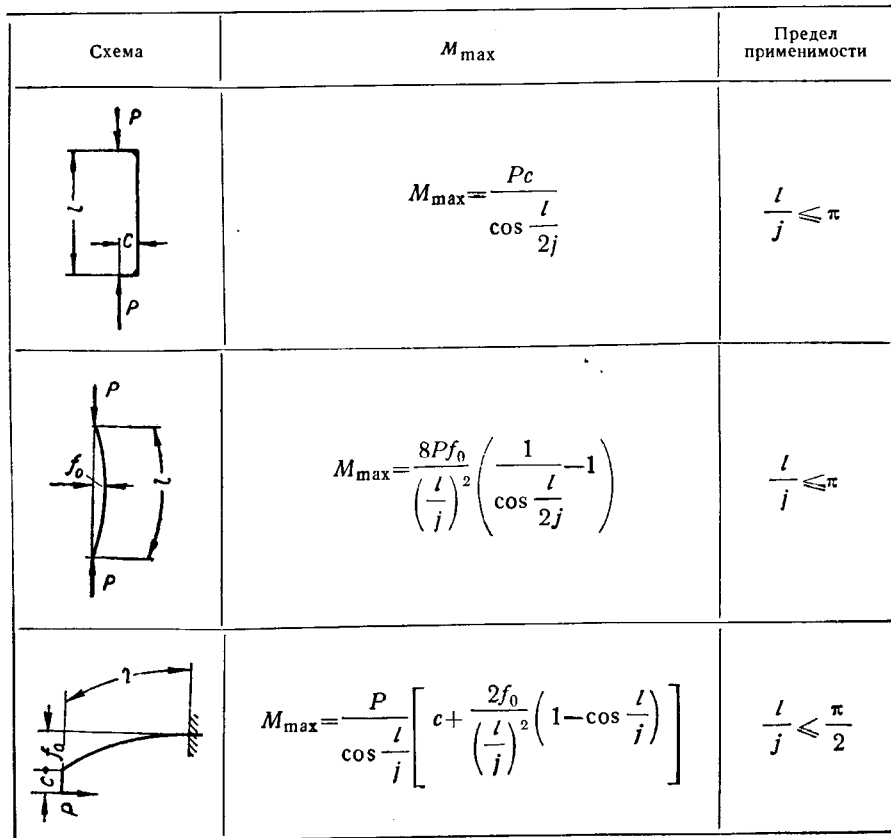 Схема
M_max
Предел применимости
P
l
c
P
M_max = Pc / cos(l/2j)
l/j ⩽ π
P
f₀
l
P
M_max = 8Pf₀ / (l/j)² (1 / cos(l/2j) − 1)
l/j ⩽ π
l
c + f₀
P
M_max = P / cos(l/j) [c + 2f₀ / (l/j)² (1 − cos(l/j))]
l/j ⩽ π/2